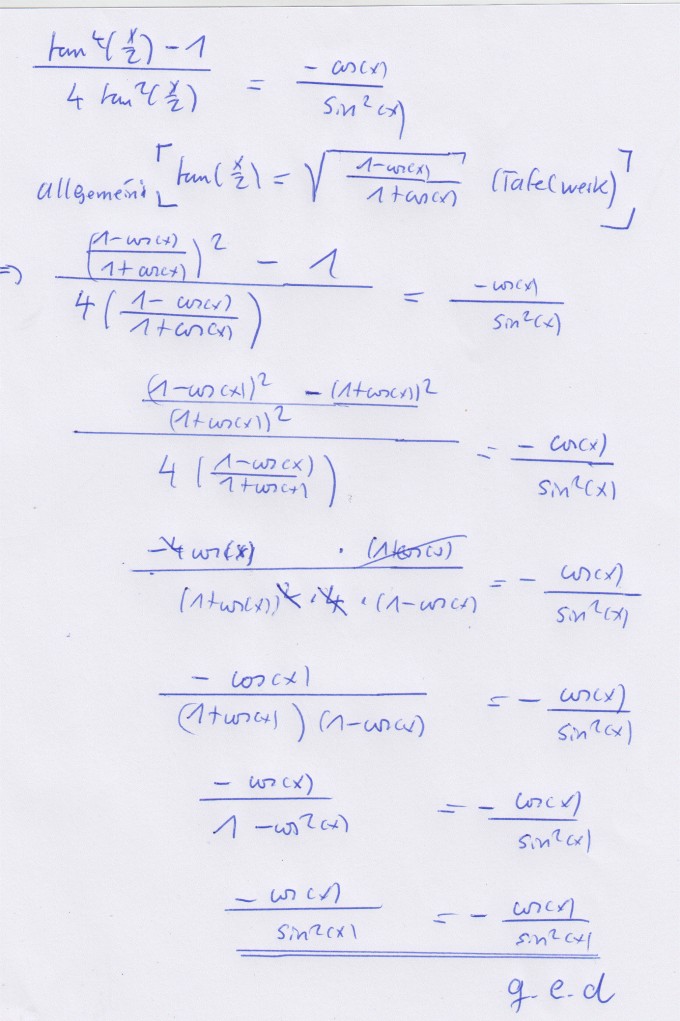 tan⁴(x/2) - 1 / 4 tan²(x/2) = - cos(x) / sin²(x)
allgemein [ tan(x/2) = √( 1-cos(x) / 1+cos(x) ) (Tafelwerk) ]
=> ( 1-cos(x) / 1+cos(x) )² - 1 / 4 ( 1-cos(x) / 1+cos(x) ) = -cos(x) / sin²(x)
(1-cos(x))² - (1+cos(x))² / (1+cos(x))² / 4 ( 1-cos(x) / 1+cos(x) ) = - cos(x) / sin²(x)
-4 cos(x) · (1+cos(x)) / (1+cos(x))² · 4 · (1-cos(x)) = - cos(x) / sin²(x)
- cos(x) / (1+cos(x)) (1-cos(x)) = - cos(x) / sin²(x)
- cos(x) / 1 - cos²(x) = - cos(x) / sin²(x)
- cos(x) / sin²(x) = - cos(x) / sin²(x)
q. e. d